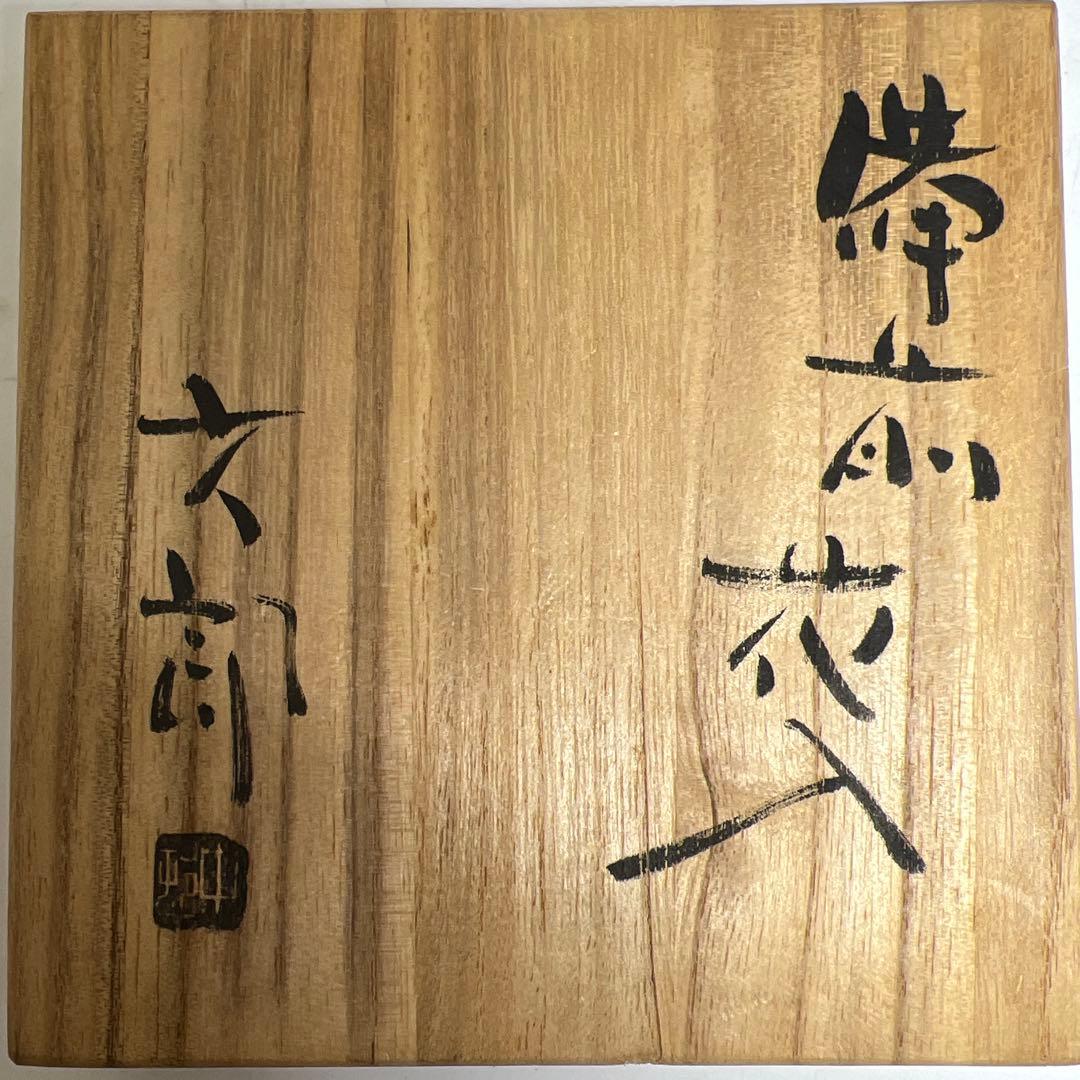 備前花入
六郎